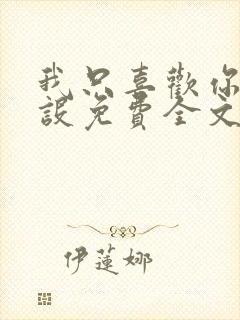 我只喜歡你
設免費全文
伊蓮娜